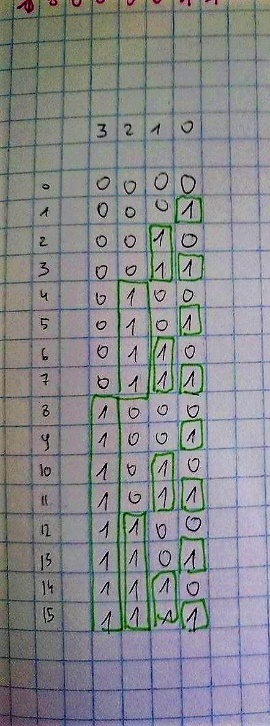 3 2 1 0
0 0 0 0 0
1 0 0 0 1
2 0 0 1 0
3 0 0 1 1
4 0 1 0 0
5 0 1 0 1
6 0 1 1 0
7 0 1 1 1
8 1 0 0 0
9 1 0 0 1
10 1 0 1 0
11 1 0 1 1
12 1 1 0 0
13 1 1 0 1
14 1 1 1 0
15 1 1 1 1